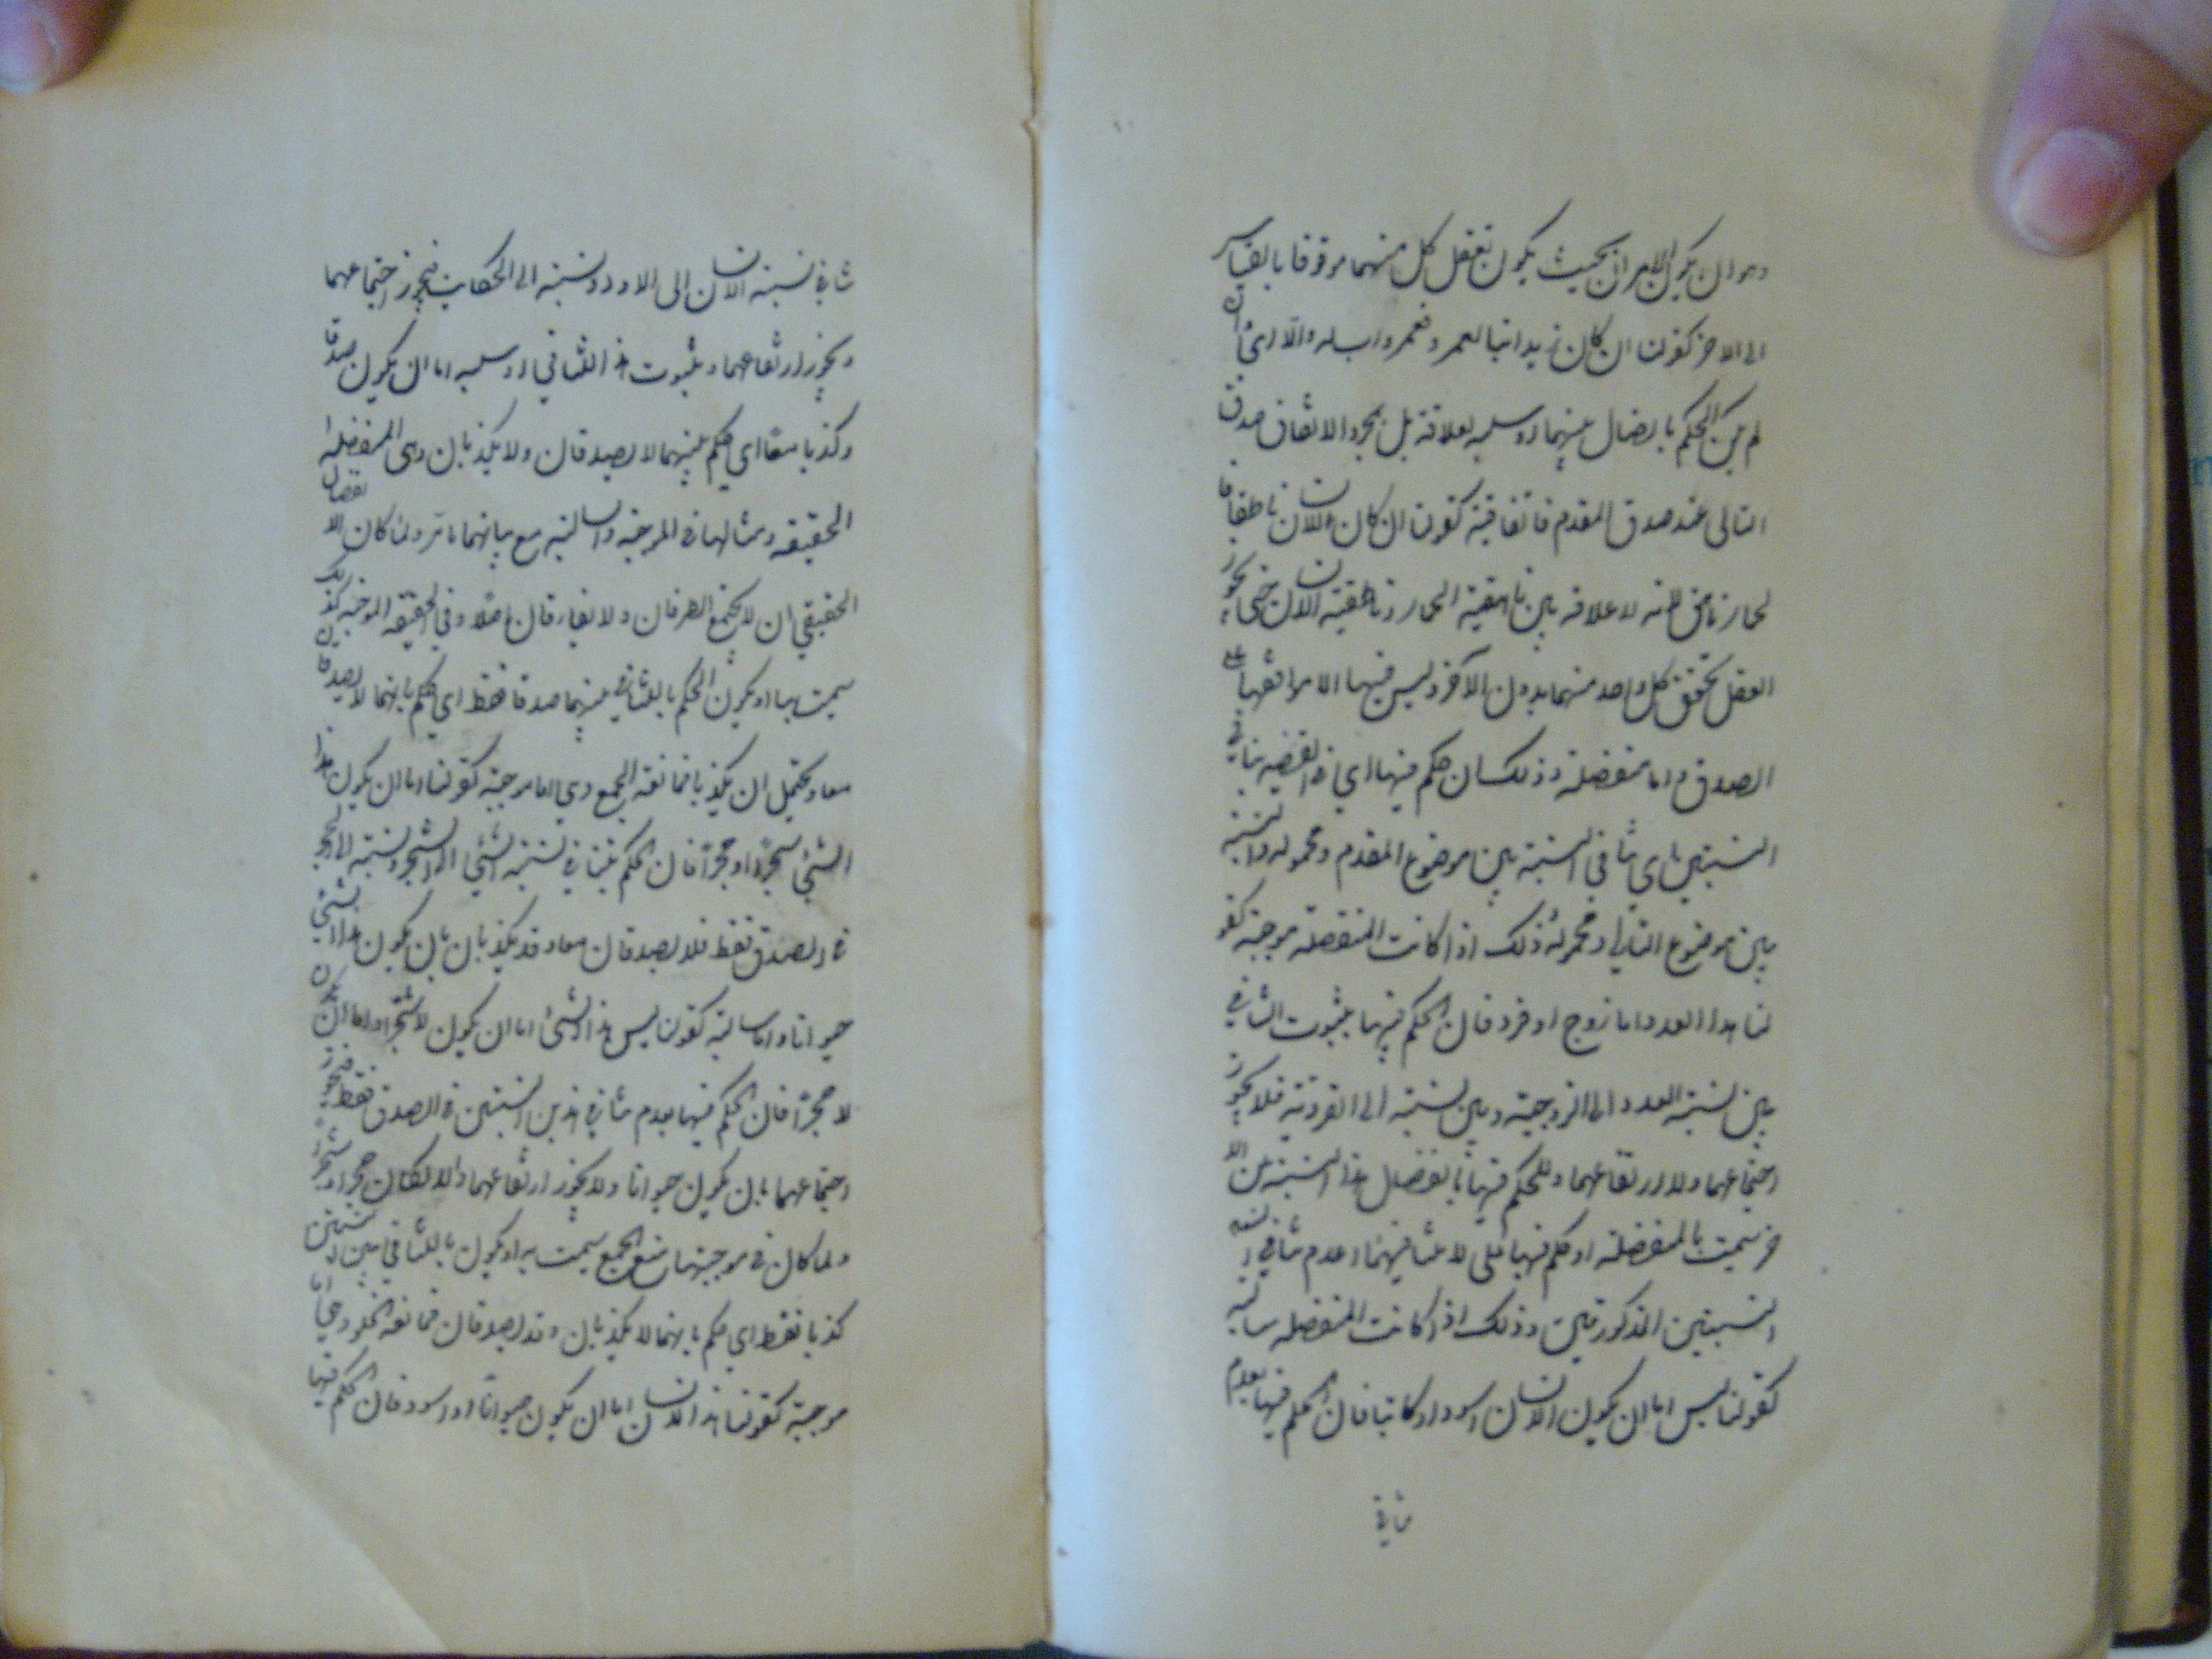 وهو ان يكون الامران بحيث يكون تعقل كل منهما موقوفا بالقياس
الى الاخر كقولنا ان كان زيد ابنا لعمرو فعمرو اب له والا اى ان
لم يكن الحكم باتصال بينهما او سلبه لعلاقة بل بمجرد الاتفاق صدق
التالى عند صدق المقدم فاتفاقية كقولنا ان كان الانسان ناطقا فا
لحمار ناهق فانه لا علاقة بين ناهقية الحمار وناطقية الانسان حتى يجوز
العقل تحقق كل واحد منهما بدون الآخر وليس فيها الا موافقتها على
الصدق واما منفصلة وذلك ان حكم فيها اي في القضية بتنافي
النسبتين اي تنافي النسبة بين موضوع المقدم ومحموله والنسبة
بين موضوع التالي ومحموله وذلك اذا كانت المنفصلة موجبة كقو
لنا هذا العدد اما زوج او فرد فان الحكم فيها بثبوت التنافي
بين نسبة العدد الى الزوجية وبين نسبته الى الفردية فلا يجوز
اجتماعهما ولا ارتفاعهما وللحكم فيها بانفصال هذا النسبة من الا
خر سميت بالمنفصلة او حكم فيها على لا تنافيهما وعدم تنافي
النسبتين المذكورتين وذلك اذا كانت المنفصلة سالبة
كقولنا ليس اما ان يكون الانسان اسود او كاتبا فان الحكم فيها بعدم
تنافي
تنافي نسبة الانسان الى الاسود ونسبته الى الكاتب فيجوز اجتماعهما
ويجوز ارتفاعهما وثبوت هذا التنافي او سلبه اما ان يكون صدقا
وكذبا معا اي حكم بينهما لا يصدقان ولا يكذبان وهى المنفصلة
الحقيقة ومثالها في الموجبة والسالبة مع بيانهما ما مر ولما كان الانفصال
الحقيقي ان لا يجتمع الطرفان ولا يفارقان اصلا وفي الحقيقة الموجبة كذلك
سميت بها او يكون الحكم بالتنافي بينهما صدقا فقط اي حكم بانهما لا يصدقان
معا ويحتمل ان يكذبا فمانعة الجمع وهي اما موجبة كقولنا اما ان يكون هذا
الشئ شجرا او حجرا فان الحكم بتنافي نسبة الشئ الى الشجر ونسبته الى الحجر
في الصدق فقط فلا يصدقان معا وقد يكذبان بان يكون هذا الشئ
حيوانا واما سالبة كقولنا ليس هذا الشئ اما ان يكون لا شجرا واما ان يكون
لا حجرا فان الحكم فيها بعدم تنافي هذين النسبتين في الصدق فقط فيجوز
اجتماعهما بان يكون حيوانا ولا يجوز ارتفاعهما والا لكان حجرا وشجرا
ولما كان في موجبتها منع الجمع سميت به او يكون بالتنافي بين النسبتين
كذبا فقط اي حكم بانهما لا يكذبان وقد يصدقان فمانعة الخلو وهي اما
موجبة كقولنا هذا الانسان اما ان يكون حيوانا او اسود فان الحكم فيها